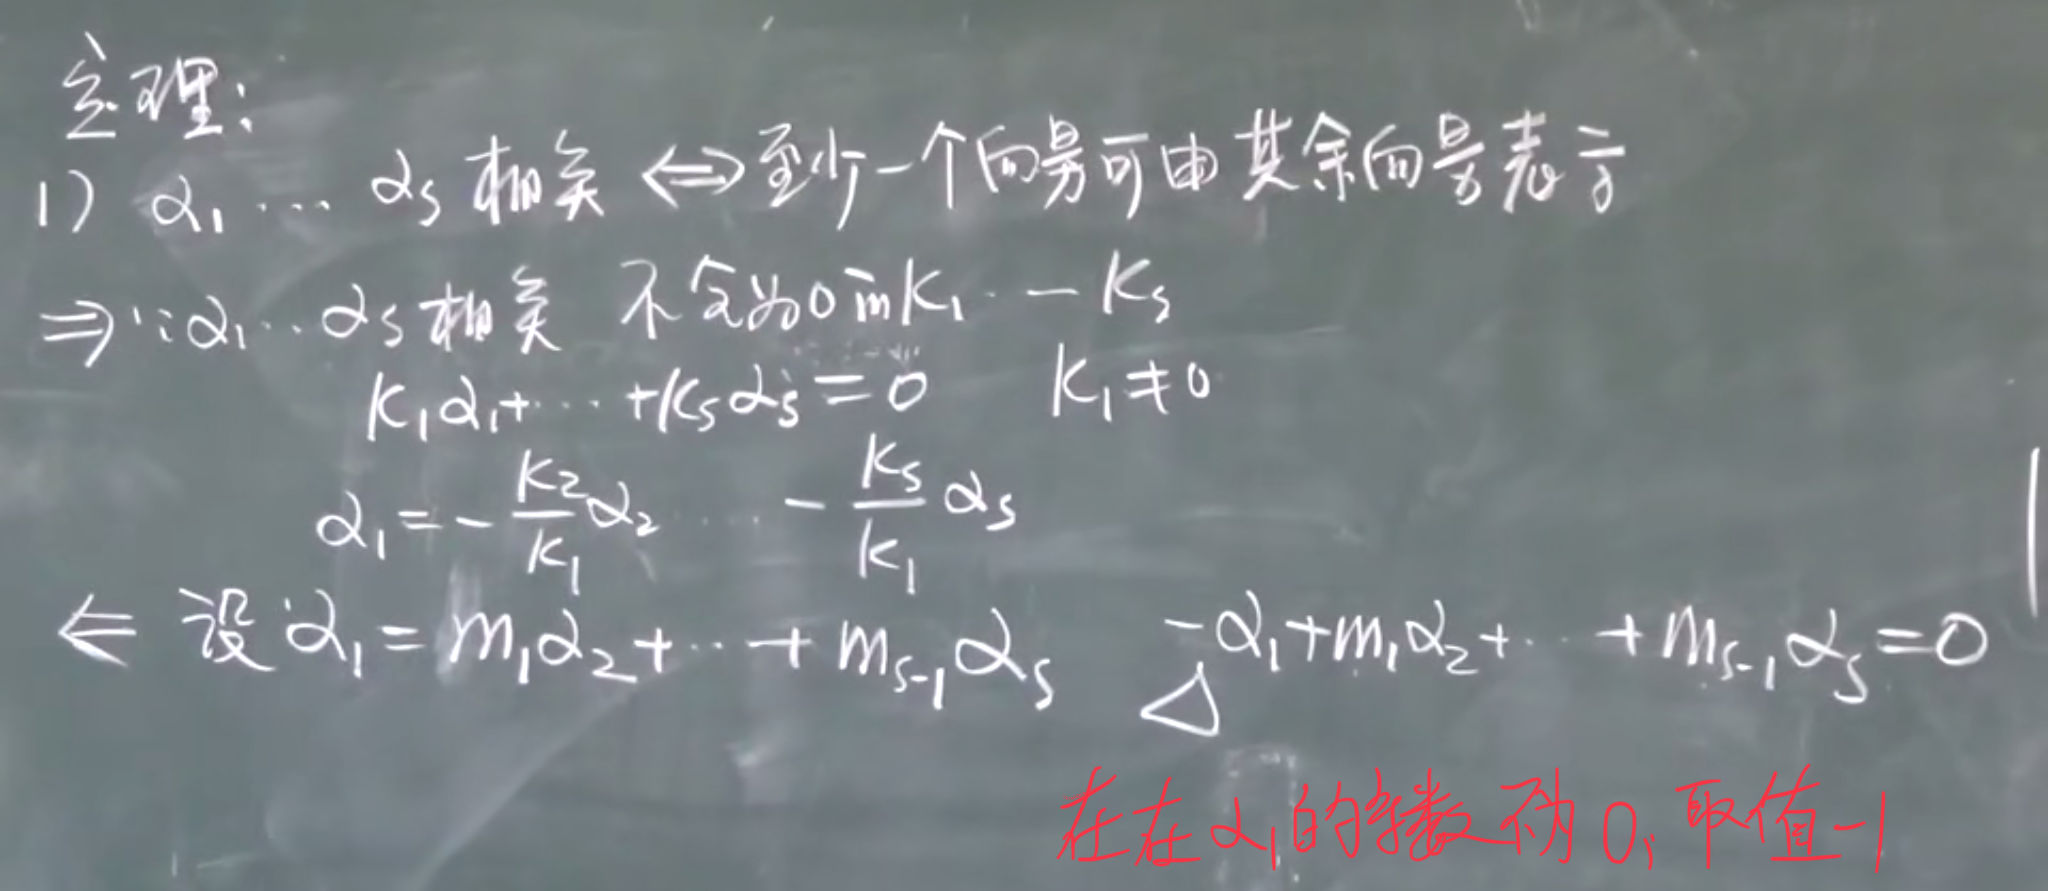 定理:
1) α₁ … αₛ 相关 ⇔ 至少一个向量可由其余向量表示
⇒ ∵ α₁ … αₛ 相关 不全为0的 K₁ … Kₛ
K₁α₁+ … +Kₛαₛ=0 K₁≠0
α₁=-K₂/K₁ α₂ … -Kₛ/K₁ αₛ
⇐ 设 α₁=m₁α₂+…+mₛ₋₁αₛ -α₁+m₁α₂+…+mₛ₋₁αₛ=0
△
在在α₁的字数不为0,取值-1